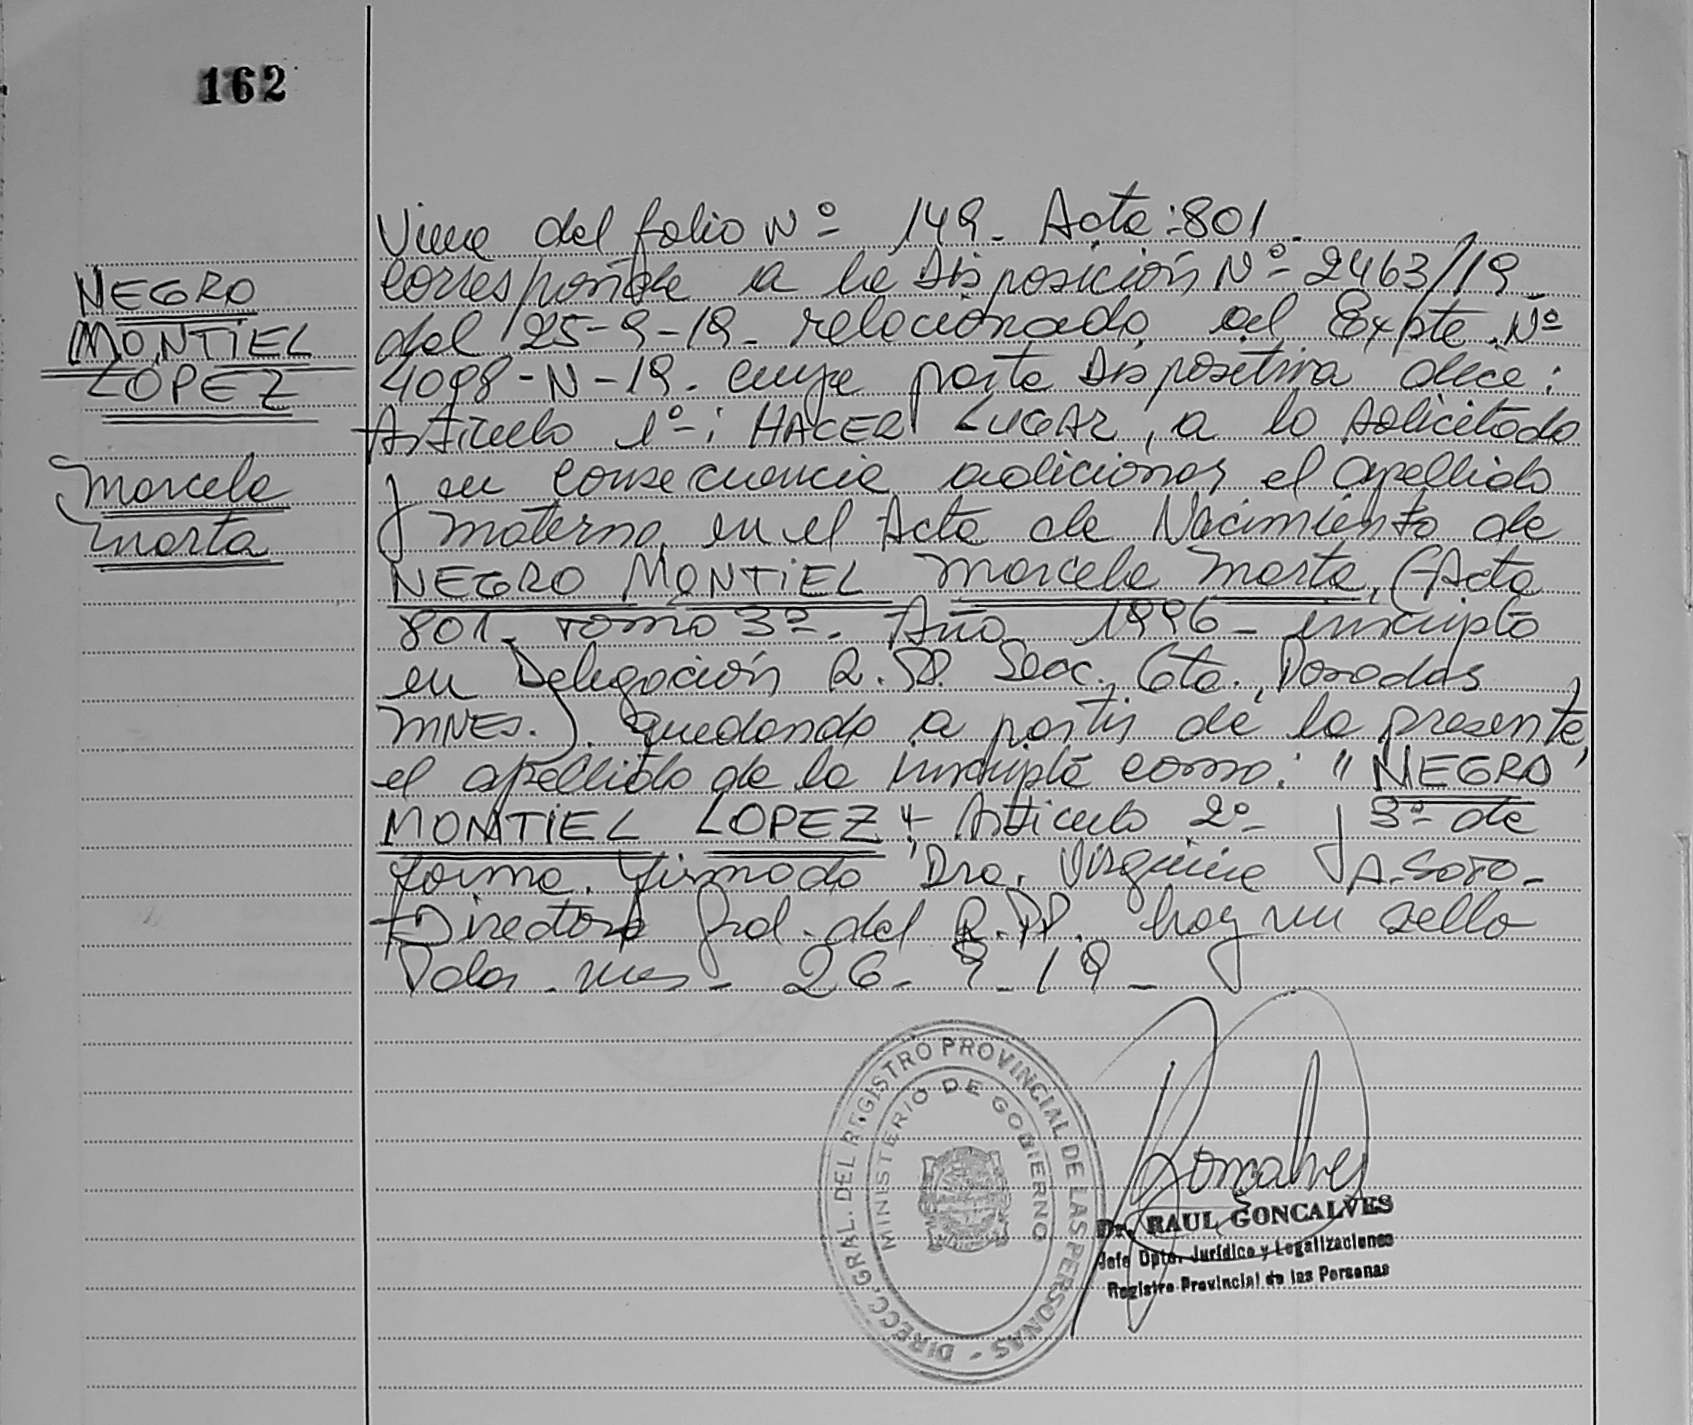 162
NEGRO
MONTIEL
LOPEZ
Marcela
Marta
Viene del folio Nº 149. Acta: 801.
Corresponde a la Disposición Nº 2463/19
del 25-9-19. relacionado al Expte. Nº
4098-N-19. cuya parte Dispositiva dice:
Artículo 1º: HACER LUGAR, a lo solicitado
y en consecuencia adicionar el apellido
materno, en el Acta de Nacimiento de
NEGRO MONTIEL Marcela Marta, (Acta
801. Tomo 3º. Año 1996 - inscripto
en Delegación R.PP. Secc. 6ta., Posadas
MNES.). quedando a partir de la presente,
el apellido de la inscripta como: "NEGRO
MONTIEL LOPEZ". Artículo 2º y 3º de
forma. Firmado Dra. Virginia A. SOTO-
Directora Gral. del R.PP. hay un sello
Pdas. Mnes. 26-9-19-
DIRECC. GRAL. DEL REGISTRO PROVINCIAL DE LAS PERSONAS -
MINISTERIO DE GOBIERNO
Goncalves
Dr. RAUL GONCALVES
Jefe Dpto. Jurídico y Legalizaciones
Registro Provincial de las Personas